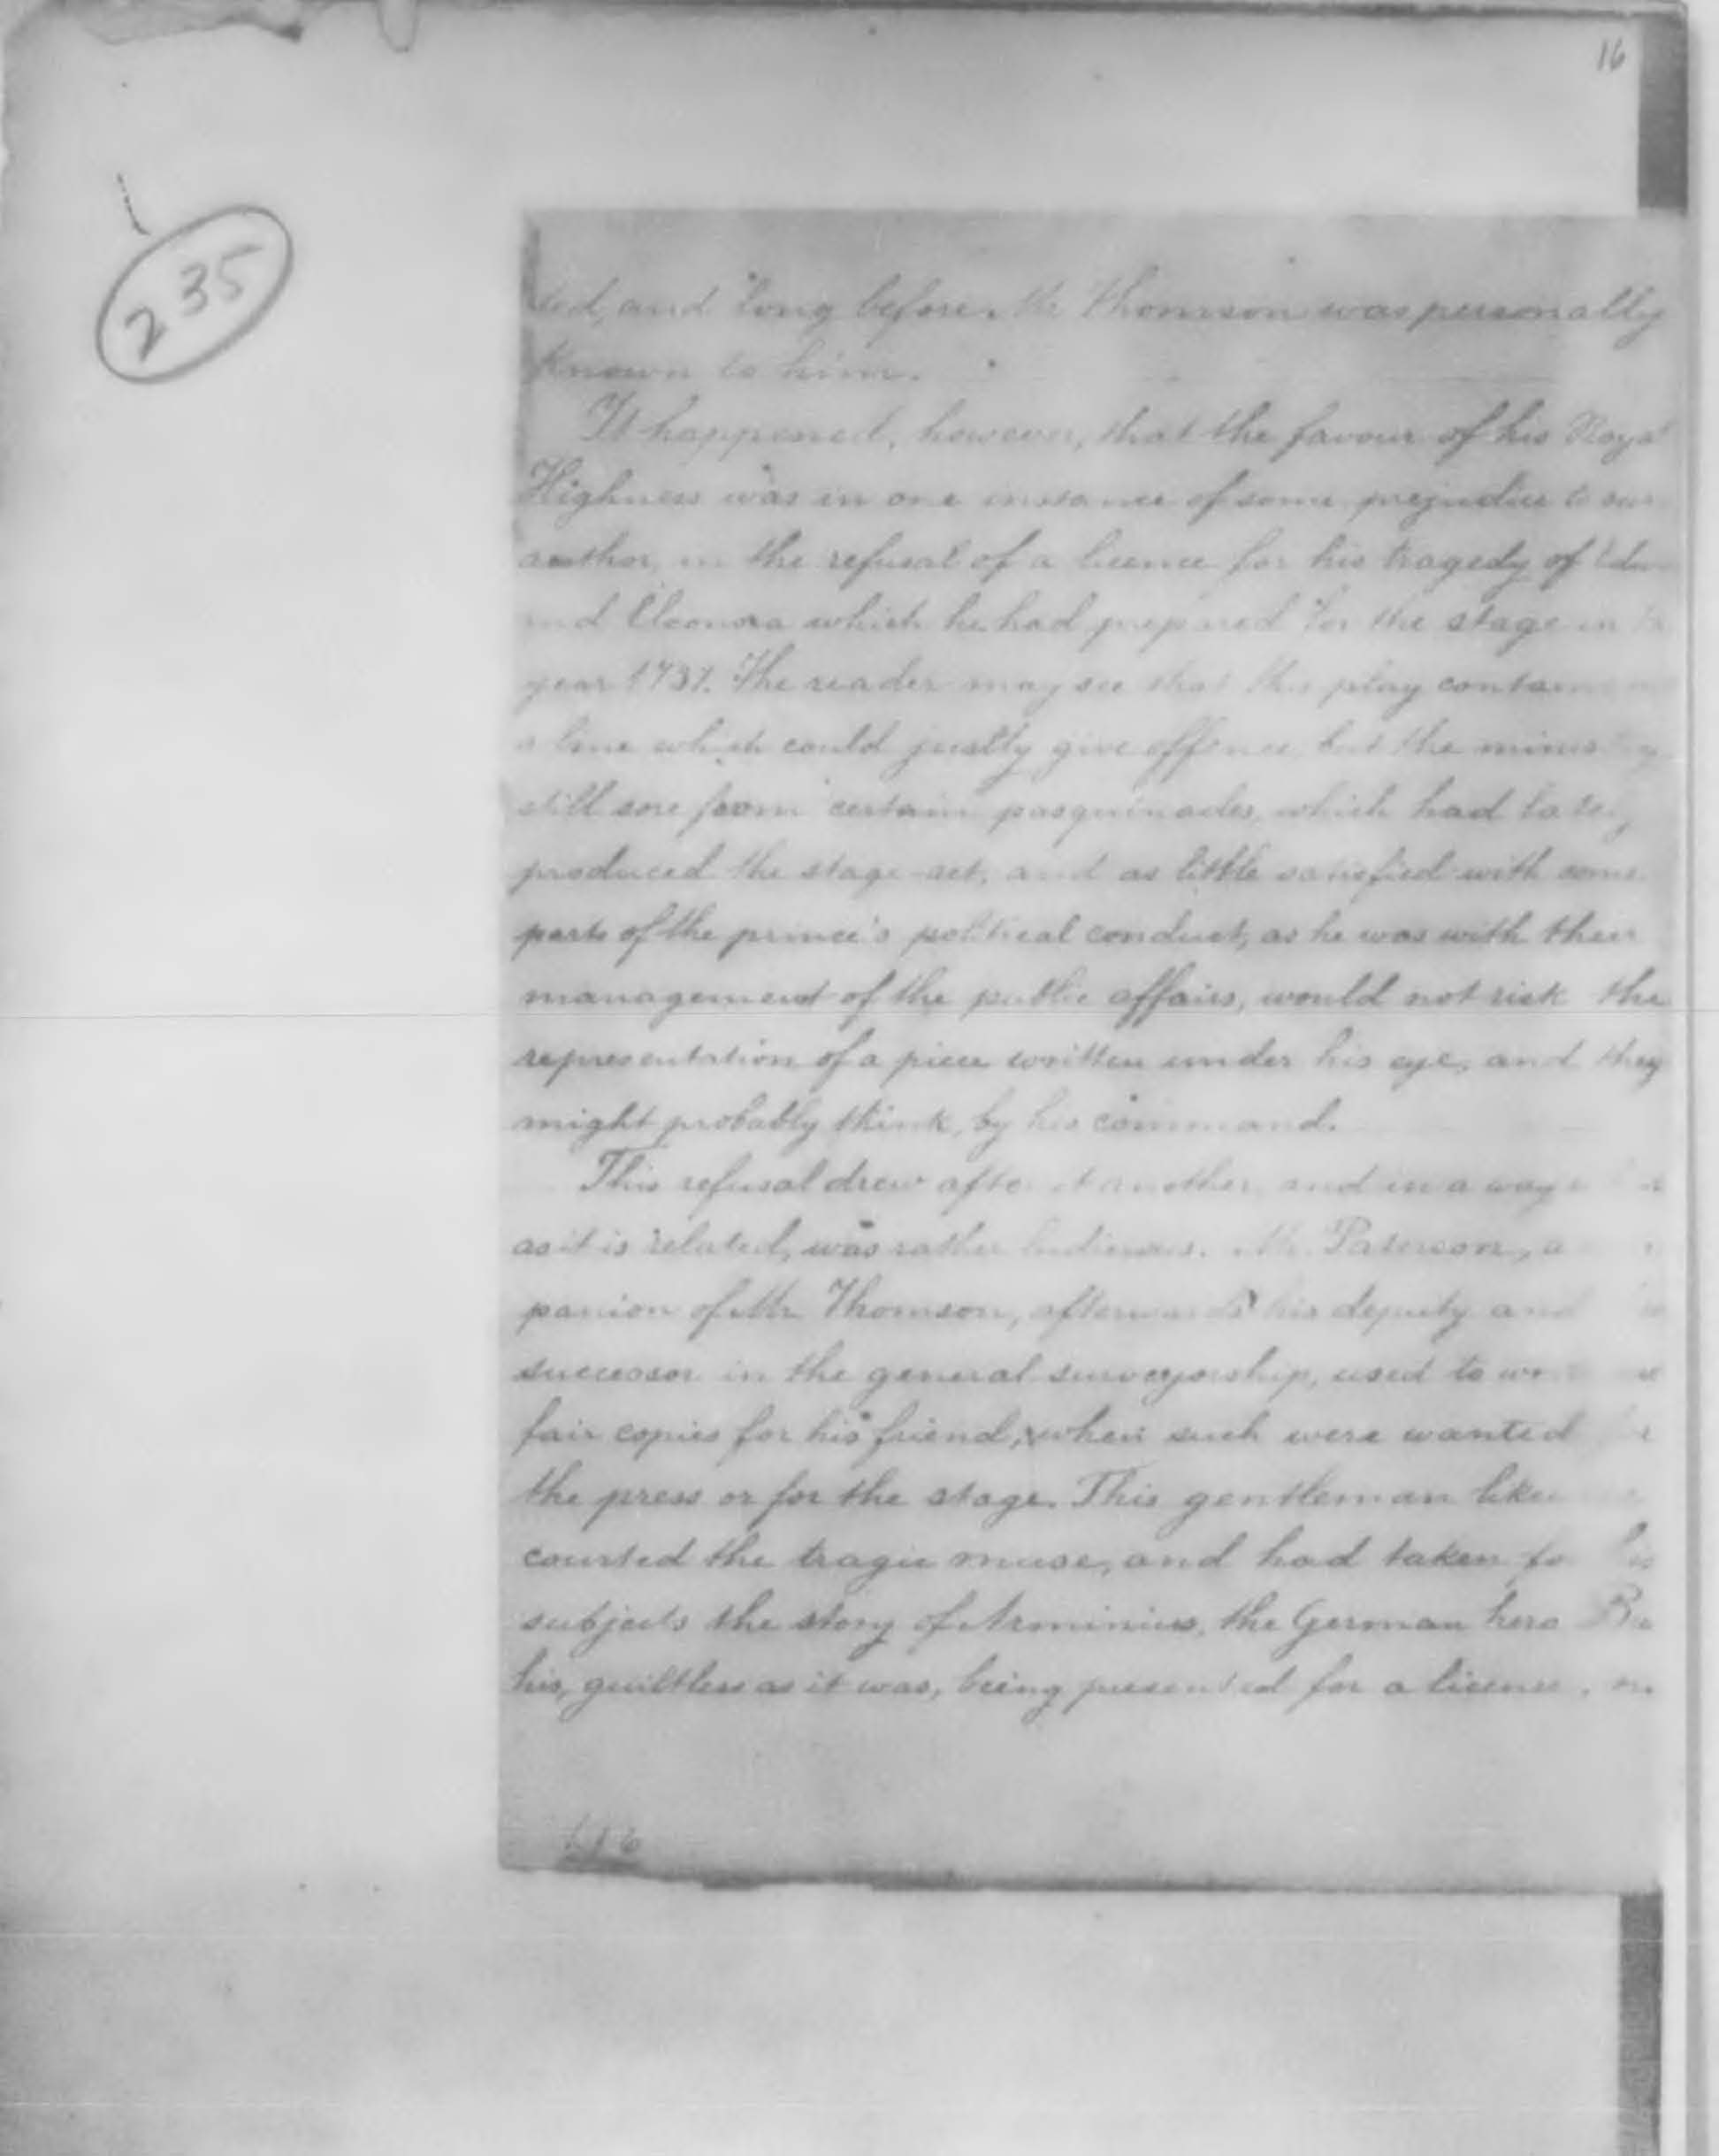 16
235
ted, and long before Mr Thomson was personally
known to him.
It happened, however, that the favour of his Royal
Highness was in one instance of some prejudice to our
author, in the refusal of a licence for his tragedy of
and Eleonora which he had prepared for the stage in
year 1737. The reader may see that this play contains
a line which could justly give offence but the ministry
still sore from certain pasquinades, which had lately
produced the stage-act, and as little satisfied with some
parts of the prince's political conduct, as he was with their
management of the public affairs, would not risk the
representation of a piece written under his eye, and they
might probably think, by his command.
This refusal drew after it another, and in a way
as it is related, was rather ludicrous. Mr. Paterson, a
panion of Mr Thomson, afterwards his deputy and
successor in the general surveyorship, used to
fair copies for his friend, when such were wanted
the press or for the stage. This gentleman like
courted the tragic muse, and had taken fo
subjects the story of Arminius, the German hero
his, guiltless as it was, being presented for a license,